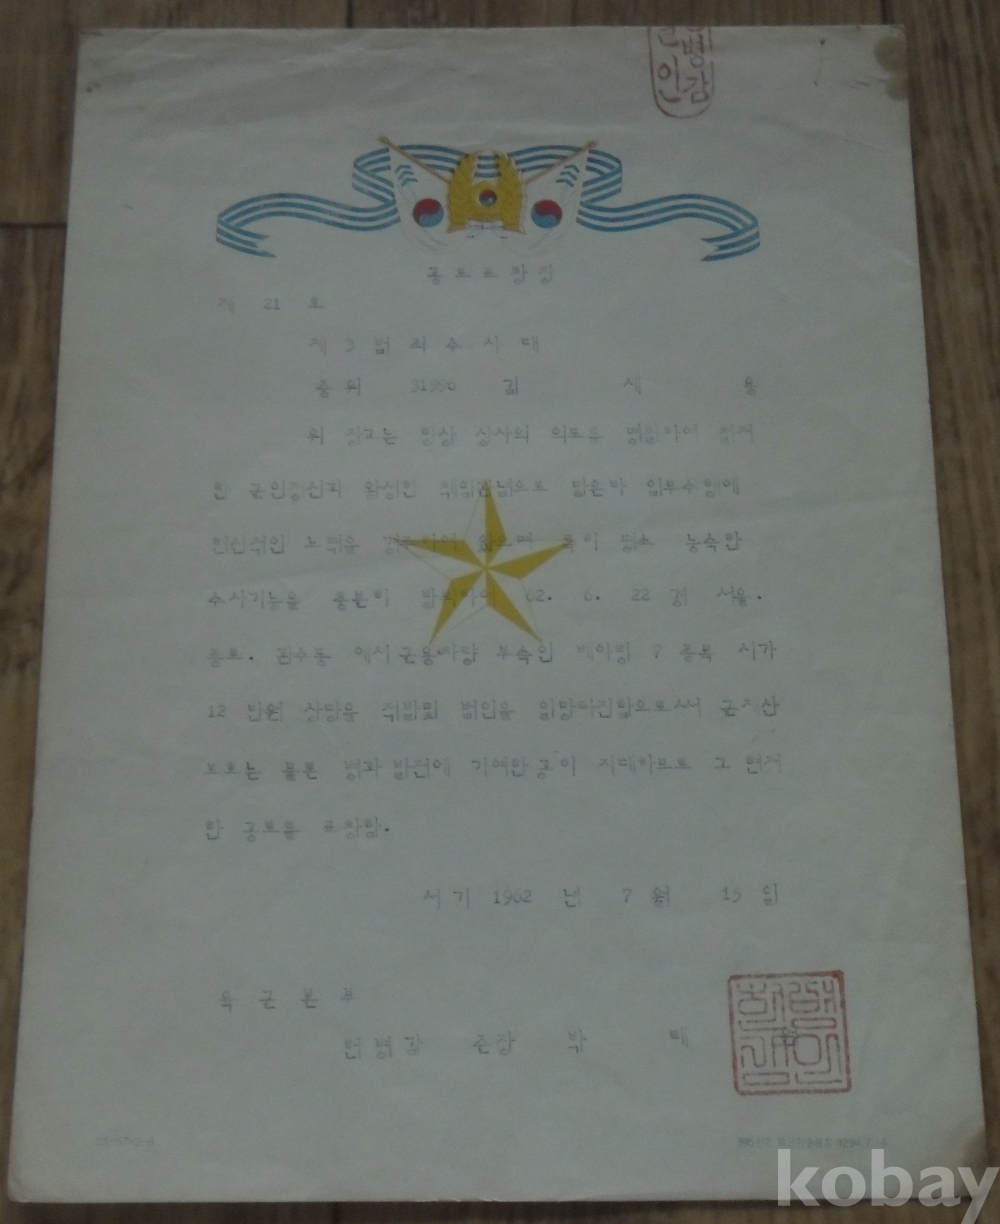 병감
인
공로표창장
제 21 호
제 3 범죄수사대
중위 31996 김 세 웅
위 장교는 항상 상사의 의도를 명찰하여 투철
한 군인정신과 왕성한 책임관념으로 맡은바 임무수행에
헌신적인 노력을 경주하여 왔으며 특히 평소 능숙한
수사기능을 충분히 발휘하여 62. 6. 22 경 서울.
종로. 관수동 에서 군용차량 부속인 베아링 7 종목 시가
12 만원 상당을 적발및 범인을 일망타진함으로써 군재산
보호는 물론 병과 발전에 기여한 공이 지대하므로 그 현저
한 공로를 표창함.
서기 1962 년 7 월 19 일
육 군 본 부
헌병감 준장 박 태
kobay